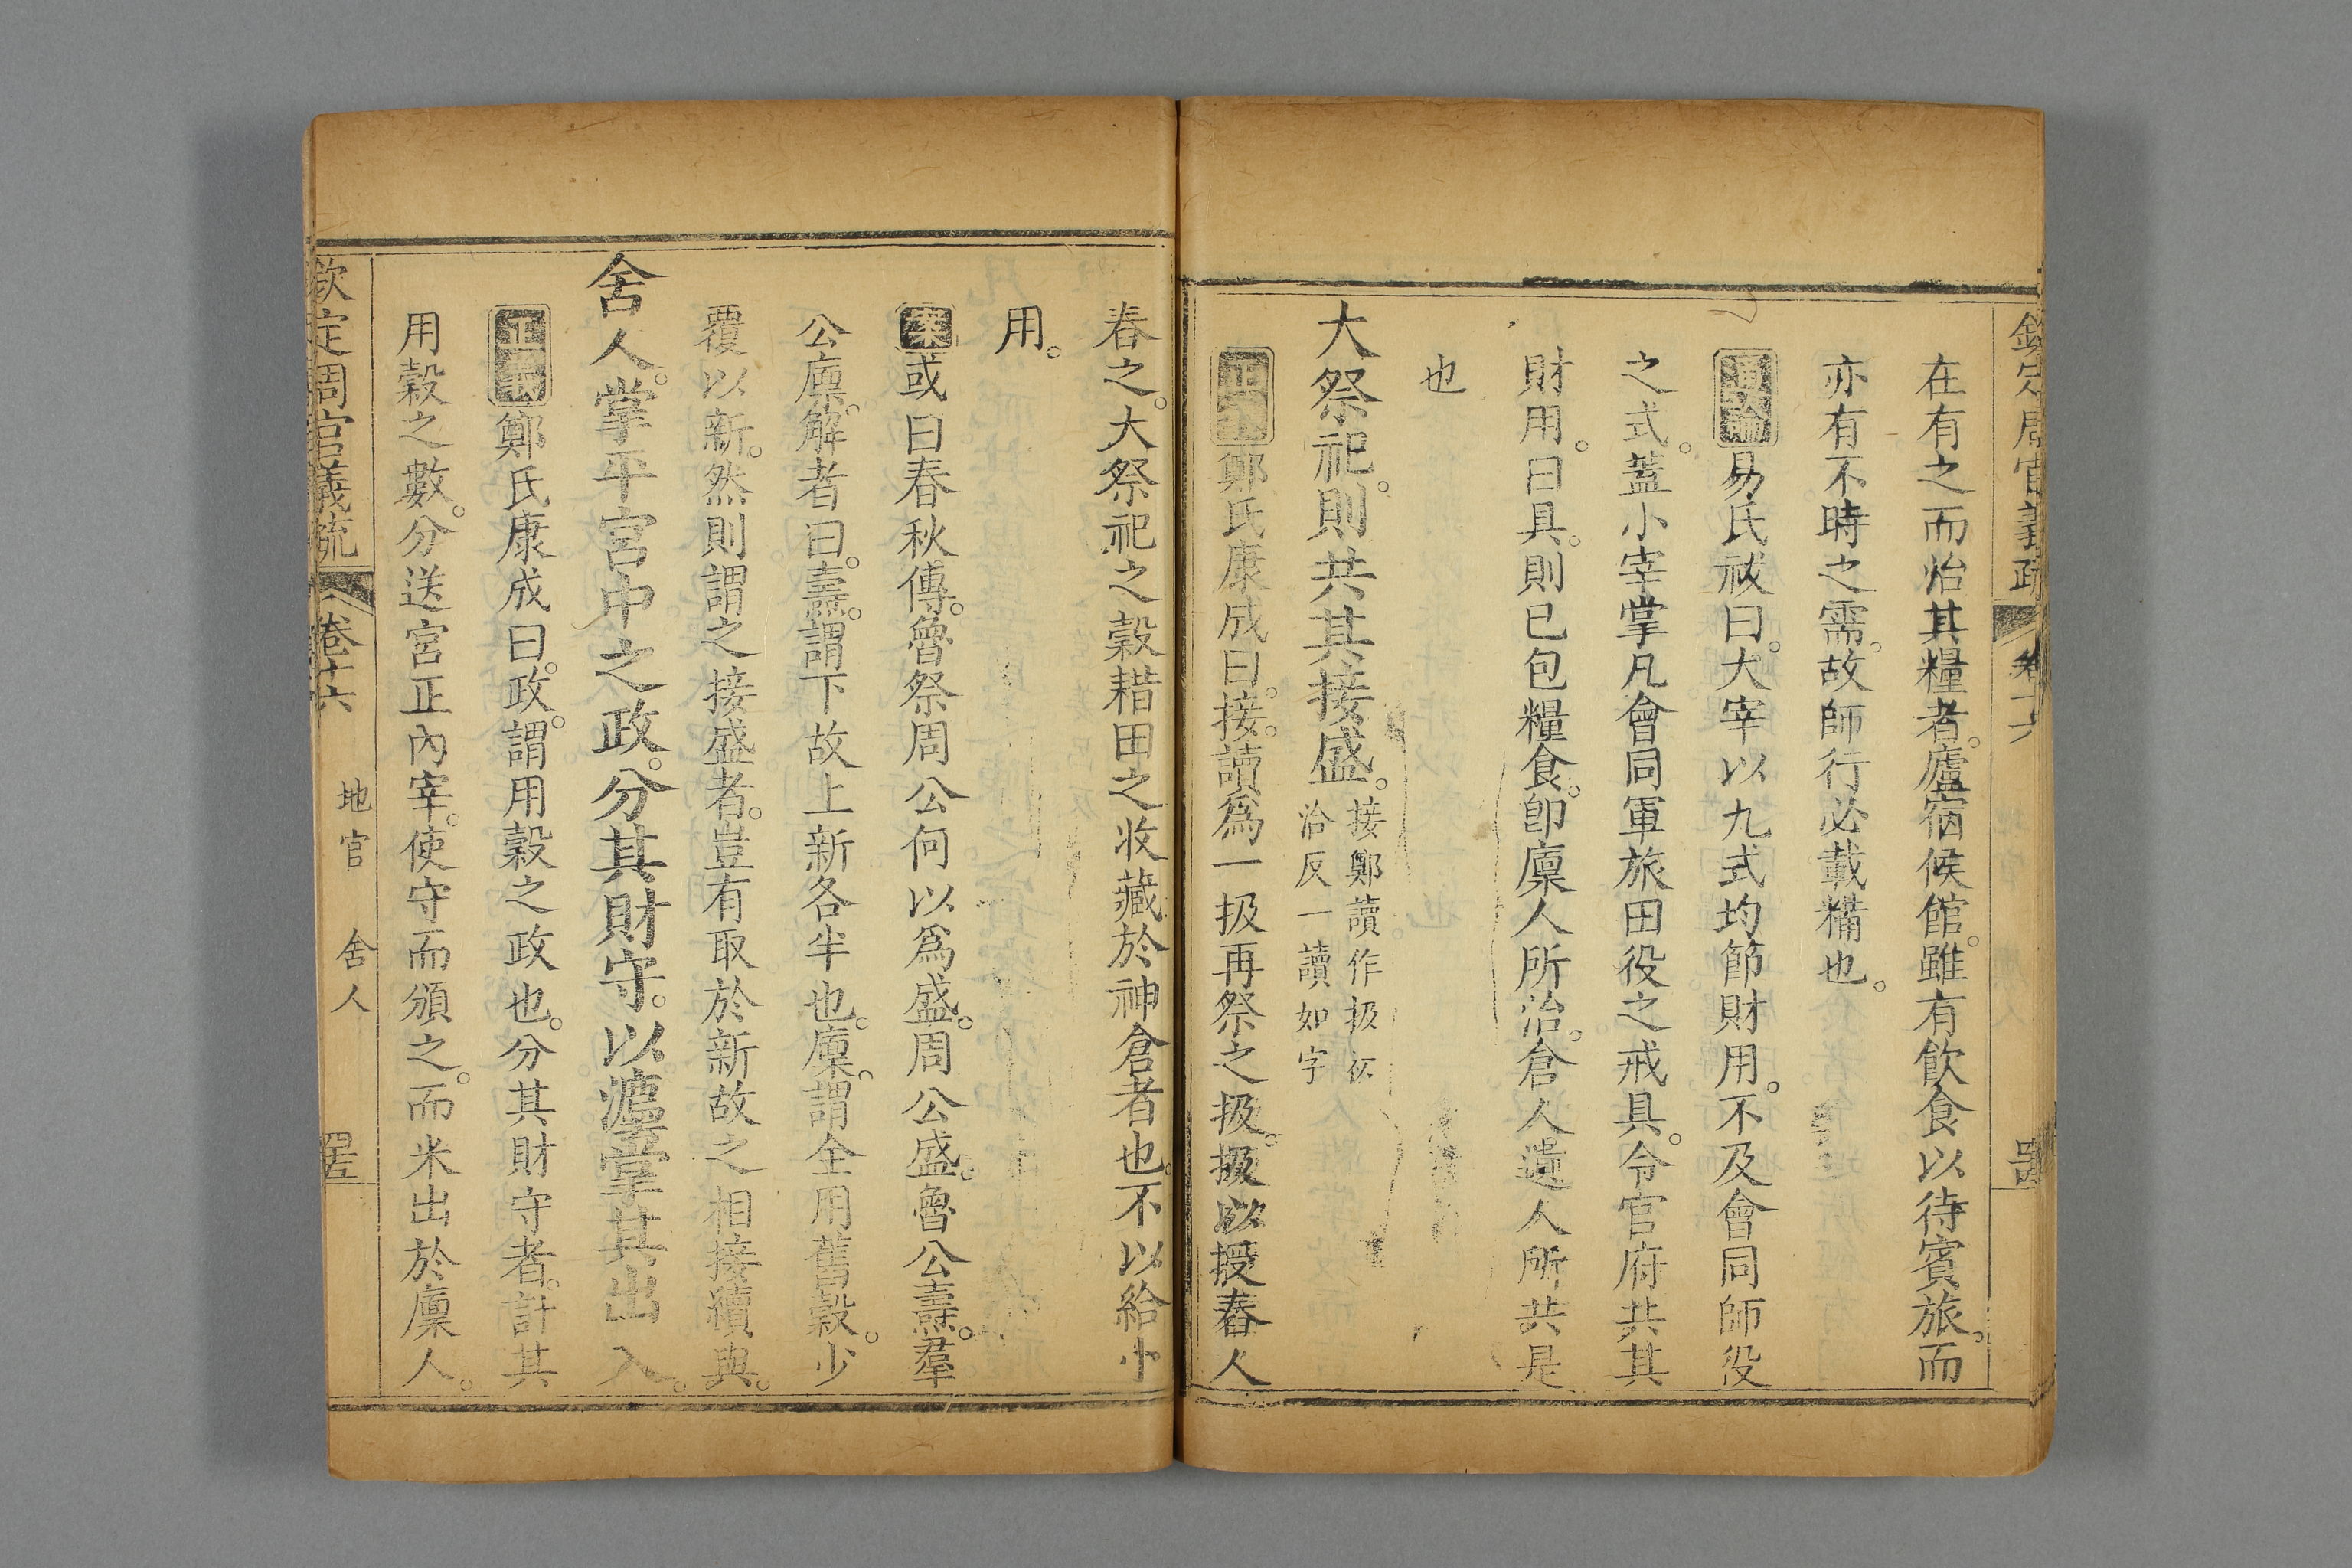 欽定周官義疏 卷十六
在有之而怡其糧者。廬宿候館。雖有飲食以待賓旅。而
亦有不時之需。故師行必載糒也。
通論易氏祓曰。大宰以九式均節財用。不及會同師役
之式。蓋小宰掌凡會同軍旅田役之戒具。令官府共其
財用。曰具。則已包糧食。卽廩人所治。倉人遺人所共是
也
大祭祀。則共其接盛。接鄭讀作扱
洽反一讀如字
正義鄭氏康成曰。接。讀爲一扱再祭之扱。扱以授舂人
舂之。大祭祀之穀耤田之收藏於神倉者也。不以給小
用。
案或曰春秋傳。魯祭周公何以爲盛。周公盛。魯公燾。羣
公廩。解者曰。燾。謂下故上新各半也。廩。謂全用舊穀。少
覆以新。然則謂之接盛者。豈有取於新故之相接續與。
舍人。掌平宮中之政。分其財守。以灋掌其出入。
正義鄭氏康成曰。政。謂用穀之政也。分其財守者。計其
用穀之數。分送宮正內宰。使守而頒之。而米出於廩人。
欽定周官義疏 卷十六 地官 舍人